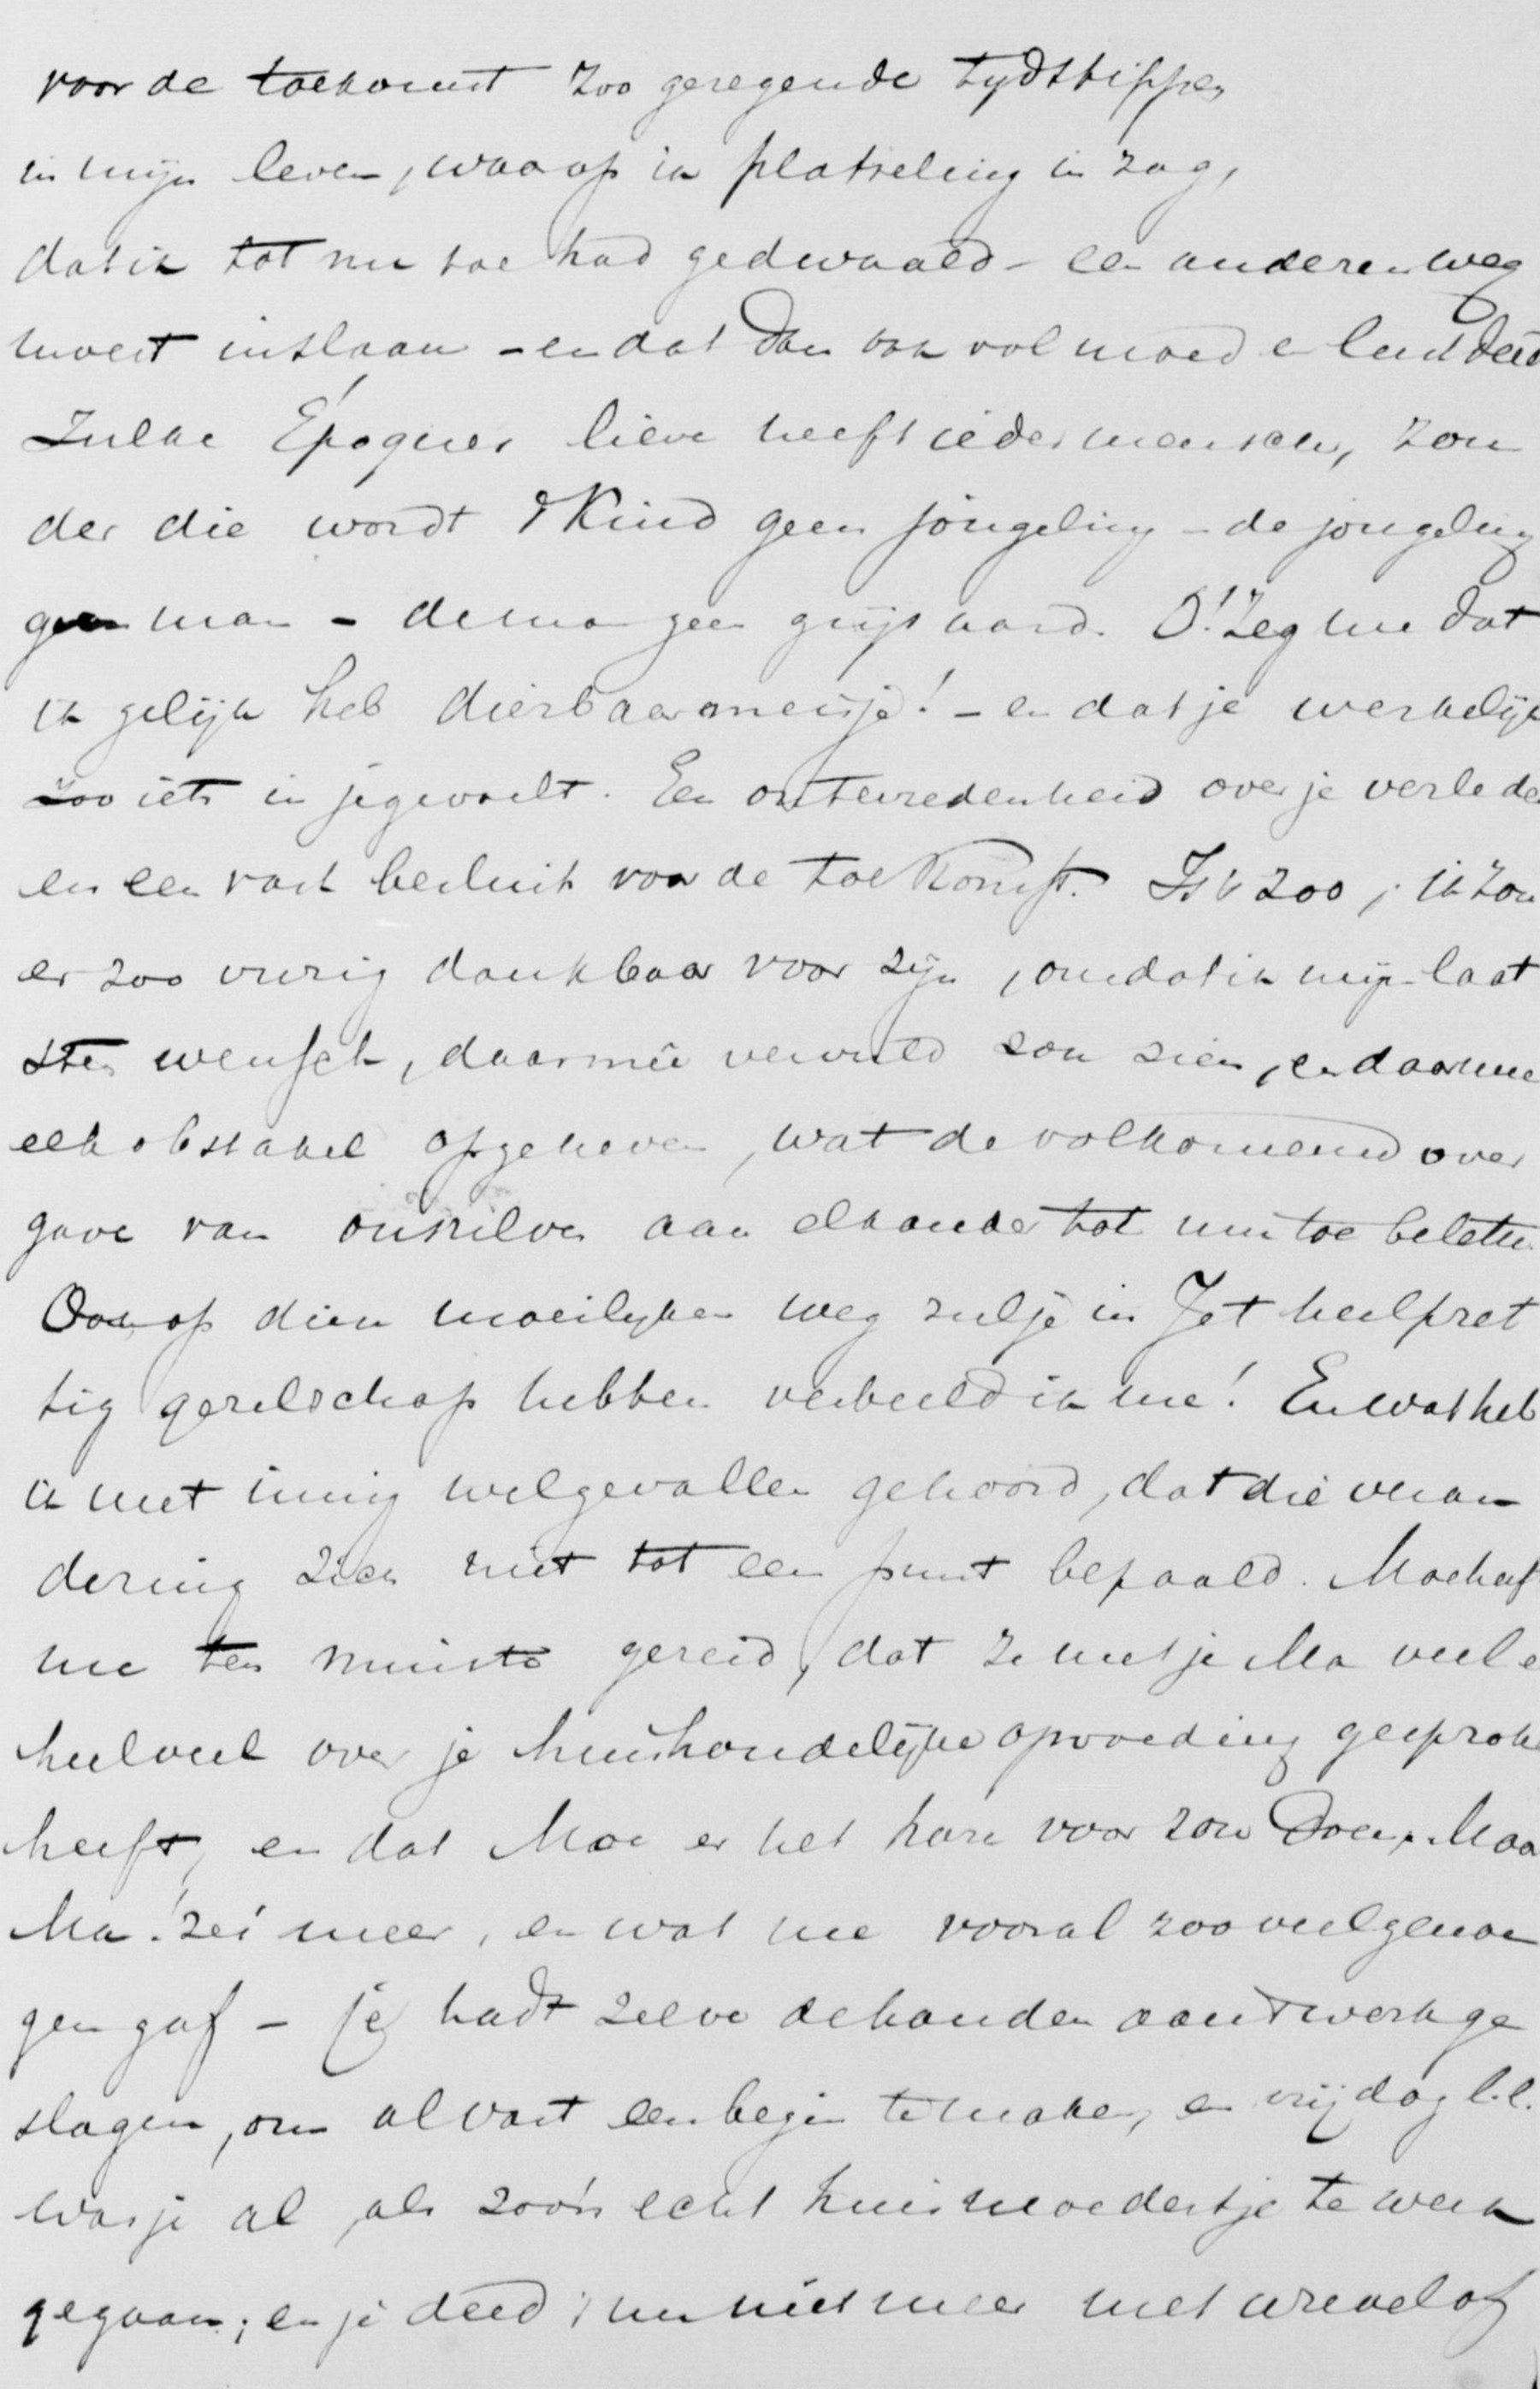 voor de toekomst zoo gezegende tydstippen
in mijn leven, waarop ik plotseling in zag,
dat ik tot nu toe had gedwaald - een anderen weg
moest inslaan - en dat dan ook vol moed en lust deed
Zulke Époques lieve heeft ieder mensch, zon
der die wordt 't Kind geen jongeling - de jongeling
geen man - de man geen grijsaard. O! Zeg me dat
ik gelijk heb dierbaar meisje! - en dat je werkelijk
zoo iets in je gevoelt. Een ontevredenheid over je verleden
en een vast besluit voor de toekomst. Is 't zoo, ik zou
er zoo vurig dankbaar voor zijn, omdat ik mijn laat
sten wensch, daarmeê vervuld zou zien, en daarmee
elk obstakel opgeheven, wat de volkomend over
gave van onszelven aan elkander tot nu toe belette.
Ook op dien moeilyken weg zul je in Jet heel pret
tig gezelschap hebben verbeeld ik me! En wat heb
ik met innig welgevallen gehoord, dat die veran
dering zich niet tot een punt bepaald. Moe heeft
me ten minste gezeid, dat ze met je Ma veel en
heel veel over je huishoudelijke opvoeding gesproken
heeft, en dat Moe er het hare voor zou doen. Maar
Ma! zei meer, en wat me vooral zoo veel genoe
gen gaf - je hadt zelve de handen aan 't werk ge
slagen, om alvast een begin te maken, en vrijdag l.l.
was je al, als zoo'n echt huismoedertje te werk
gegaan; en je deed 't nu niet meer met wrevel of